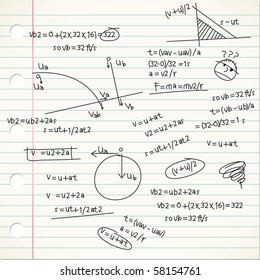 (v+u)/2
Vb2 = 0+(2x32x16)=322
so vb=32 ft/s
s-ut
???
Ua
a
Ub
Va
Vab
Va
t=(vav-uav)/a
(32-0)/32=1s
a=v2/r
F=ma=mv2/r
v=u+at
v2=u2+2as
s=ut+1/2at2
t=(vb-ub)/a
=(32-0)/32=1s
vb2=ub2+2as
s=ut+1/2at2
v=u2+2a
Ua
(v+u)/2
v=u+at
v=u2+2a
s=ut+1/2at2
Ub
v=u+at
vb2=ub2+2as
Vb2=0+(2x32x16)=322
so vb=32 ft/s
t=(vav-uav)
a=v2/r
v=u+at
shutterstock
IMAGE ID: 58154761
www.shutterstock.com